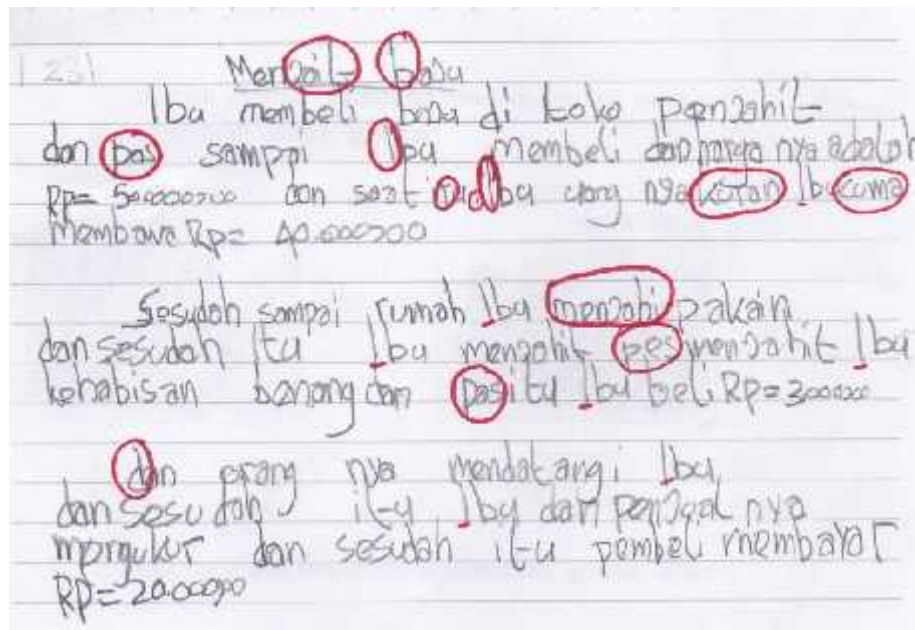 231 Menjait baju
Ibu membeli baju di toko penjahit
dan pas sampai Ibu membeli dan harga nya adalah
Rp= 50.000.000 dan saat itu Ibu uang nya kuran Ibu cuma
Membawa Rp= 40.000.000
Sesudah sampai rumah Ibu menjahi pakain
dan sesudah itu Ibu menjahit pes menjahit Ibu
kehabisan benang dan pas itu Ibu beli Rp=
dan orang nya mendatangi Ibu
dan sesudah itu Ibu dan nya
mengukur dan sesudah itu pembeli membayar
RP=